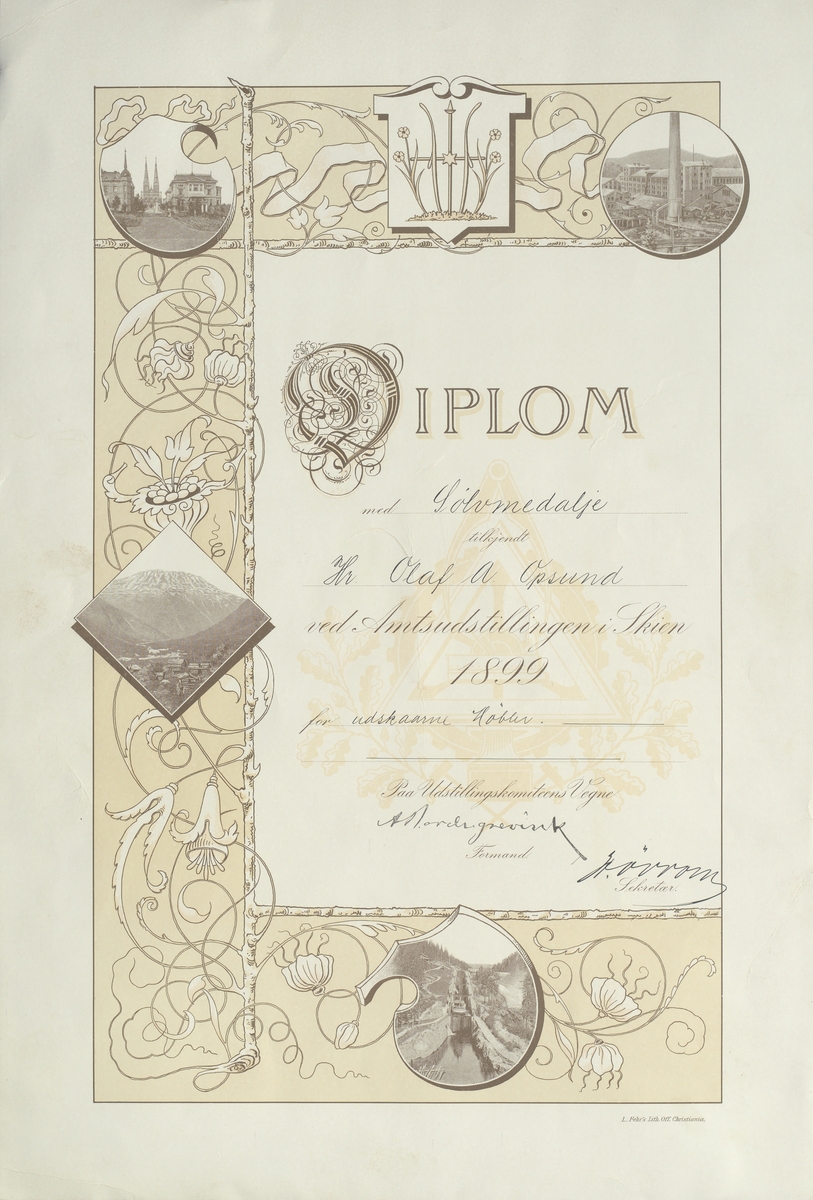 DIPLOM
med Sölvmedalje
tilkjendt
Hr Olaf A Opsund
ved Amtsudstillingen i Skien
1899
for udskaarne Möbler.
Paa Udstillingskomiteens Vegne
Formand
Sekretær.
L. Fehr's Lith. Off. Christiania.